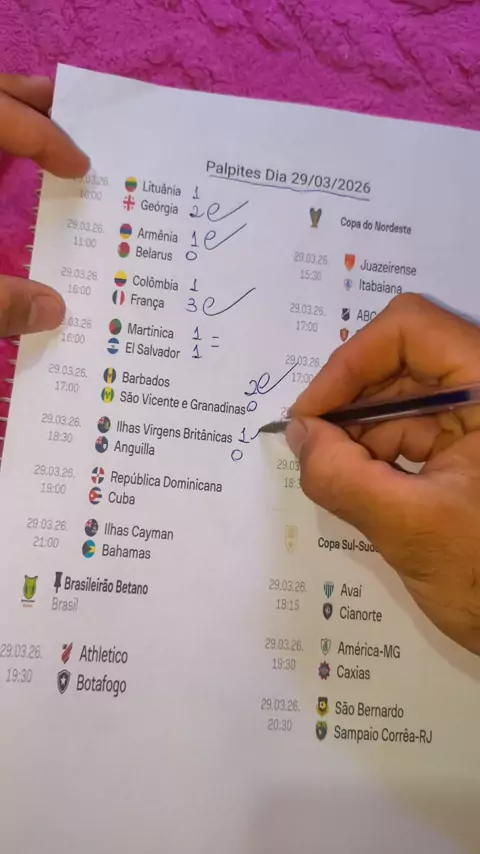 Palpites Dia 29/03/2026
Lituânia 1
Geórgia 2
29.03.26.
11:00
Armênia 1
Belarus 0
29.03.26.
16:00
Colômbia 1
França 3
16:00
Martinica 1 =
El Salvador 1
29.03.26.
17:00
Barbados 2
São Vicente e Granadinas 0
29.03.26.
18:30
Ilhas Virgens Britânicas 1
Anguilla 0
29.03.26.
19:00
República Dominicana
Cuba
29.03.26.
21:00
Ilhas Cayman
Bahamas
Brasileirão Betano
Brasil
29.03.26.
19:30
Athletico
Botafogo
Copa do Nordeste
29.03.26.
15:30
Juazeirense
Itabaiana
29.03.26.
17:00
ABC
29.03.26
17:0
29.03
18:3
Copa Sul-Sud
29.03.26.
18:15
Avaí
Cianorte
29.03.26.
19:30
América-MG
Caxias
29.03.26.
20:30
São Bernardo
Sampaio Corrêa-RJ